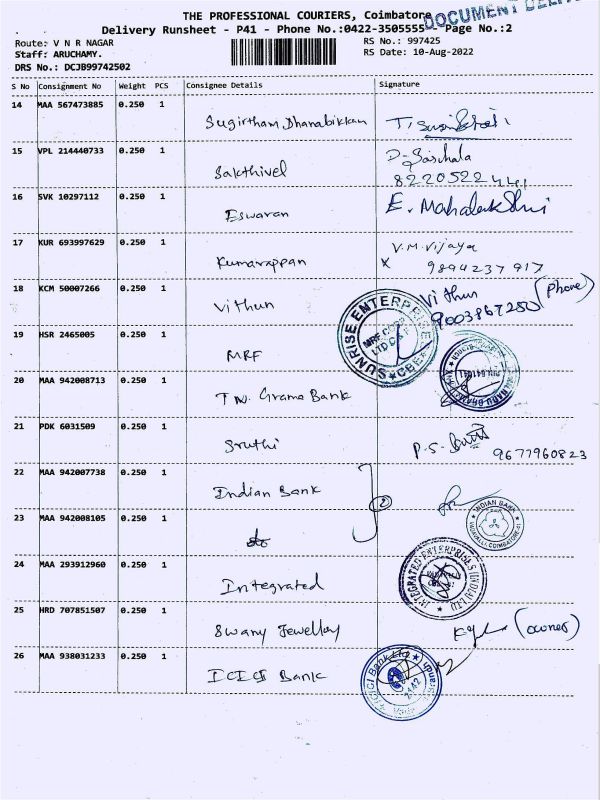 THE PROFESSIONAL COURIERS, Coimbatore
DOCUMENT
Delivery Runsheet - P41 - Phone No.:0422-3505555 - Page No.:2
Route: V N R NAGAR
RS No.: 997425
Staff: ARUCHAMY.
RS Date: 10-Aug-2022
DRS No.: DCJB99742502
S No Consignment No Weight PCS Consignee Details Signature
14 MAA 567473885 0.250 1
Sugirtham, Dhanabikkan
15 VPL 214440733 0.250 1
Sakthivel
8220522441
16 SVK 10297112 0.250 1
Eswaran E. Mahalakshmi
17 KUR 693997629 0.250 1
Kumarappan V.M. Vijaya
x 9894237917
18 KCM 50007266 0.250 1
Vithun Vithun (Phone)
9003867250
SUNRISE ENTERPRISE
MRF CORP
LTD C & F
CBE
19 HSR 2465005 0.250 1
MRF
20 MAA 942008713 0.250 1
TN. Grama Bank
21 PDK 6031509 0.250 1
Sruthi P.S. 9677960823
22 MAA 942007738 0.250 1
Indian Bank 2
INDIAN BANK
VADAVALLI, COIMBATORE-41
23 MAA 942008105 0.250 1
do
24 MAA 293912960 0.250 1
Integrated
INTEGRATED ENTERPRISES (INDIA) LTD
25 HRD 707851507 0.250 1
Swamy Jewellory (owner)
26 MAA 938031233 0.250 1
ICICI Bank
ICICI Bank Ltd
2142